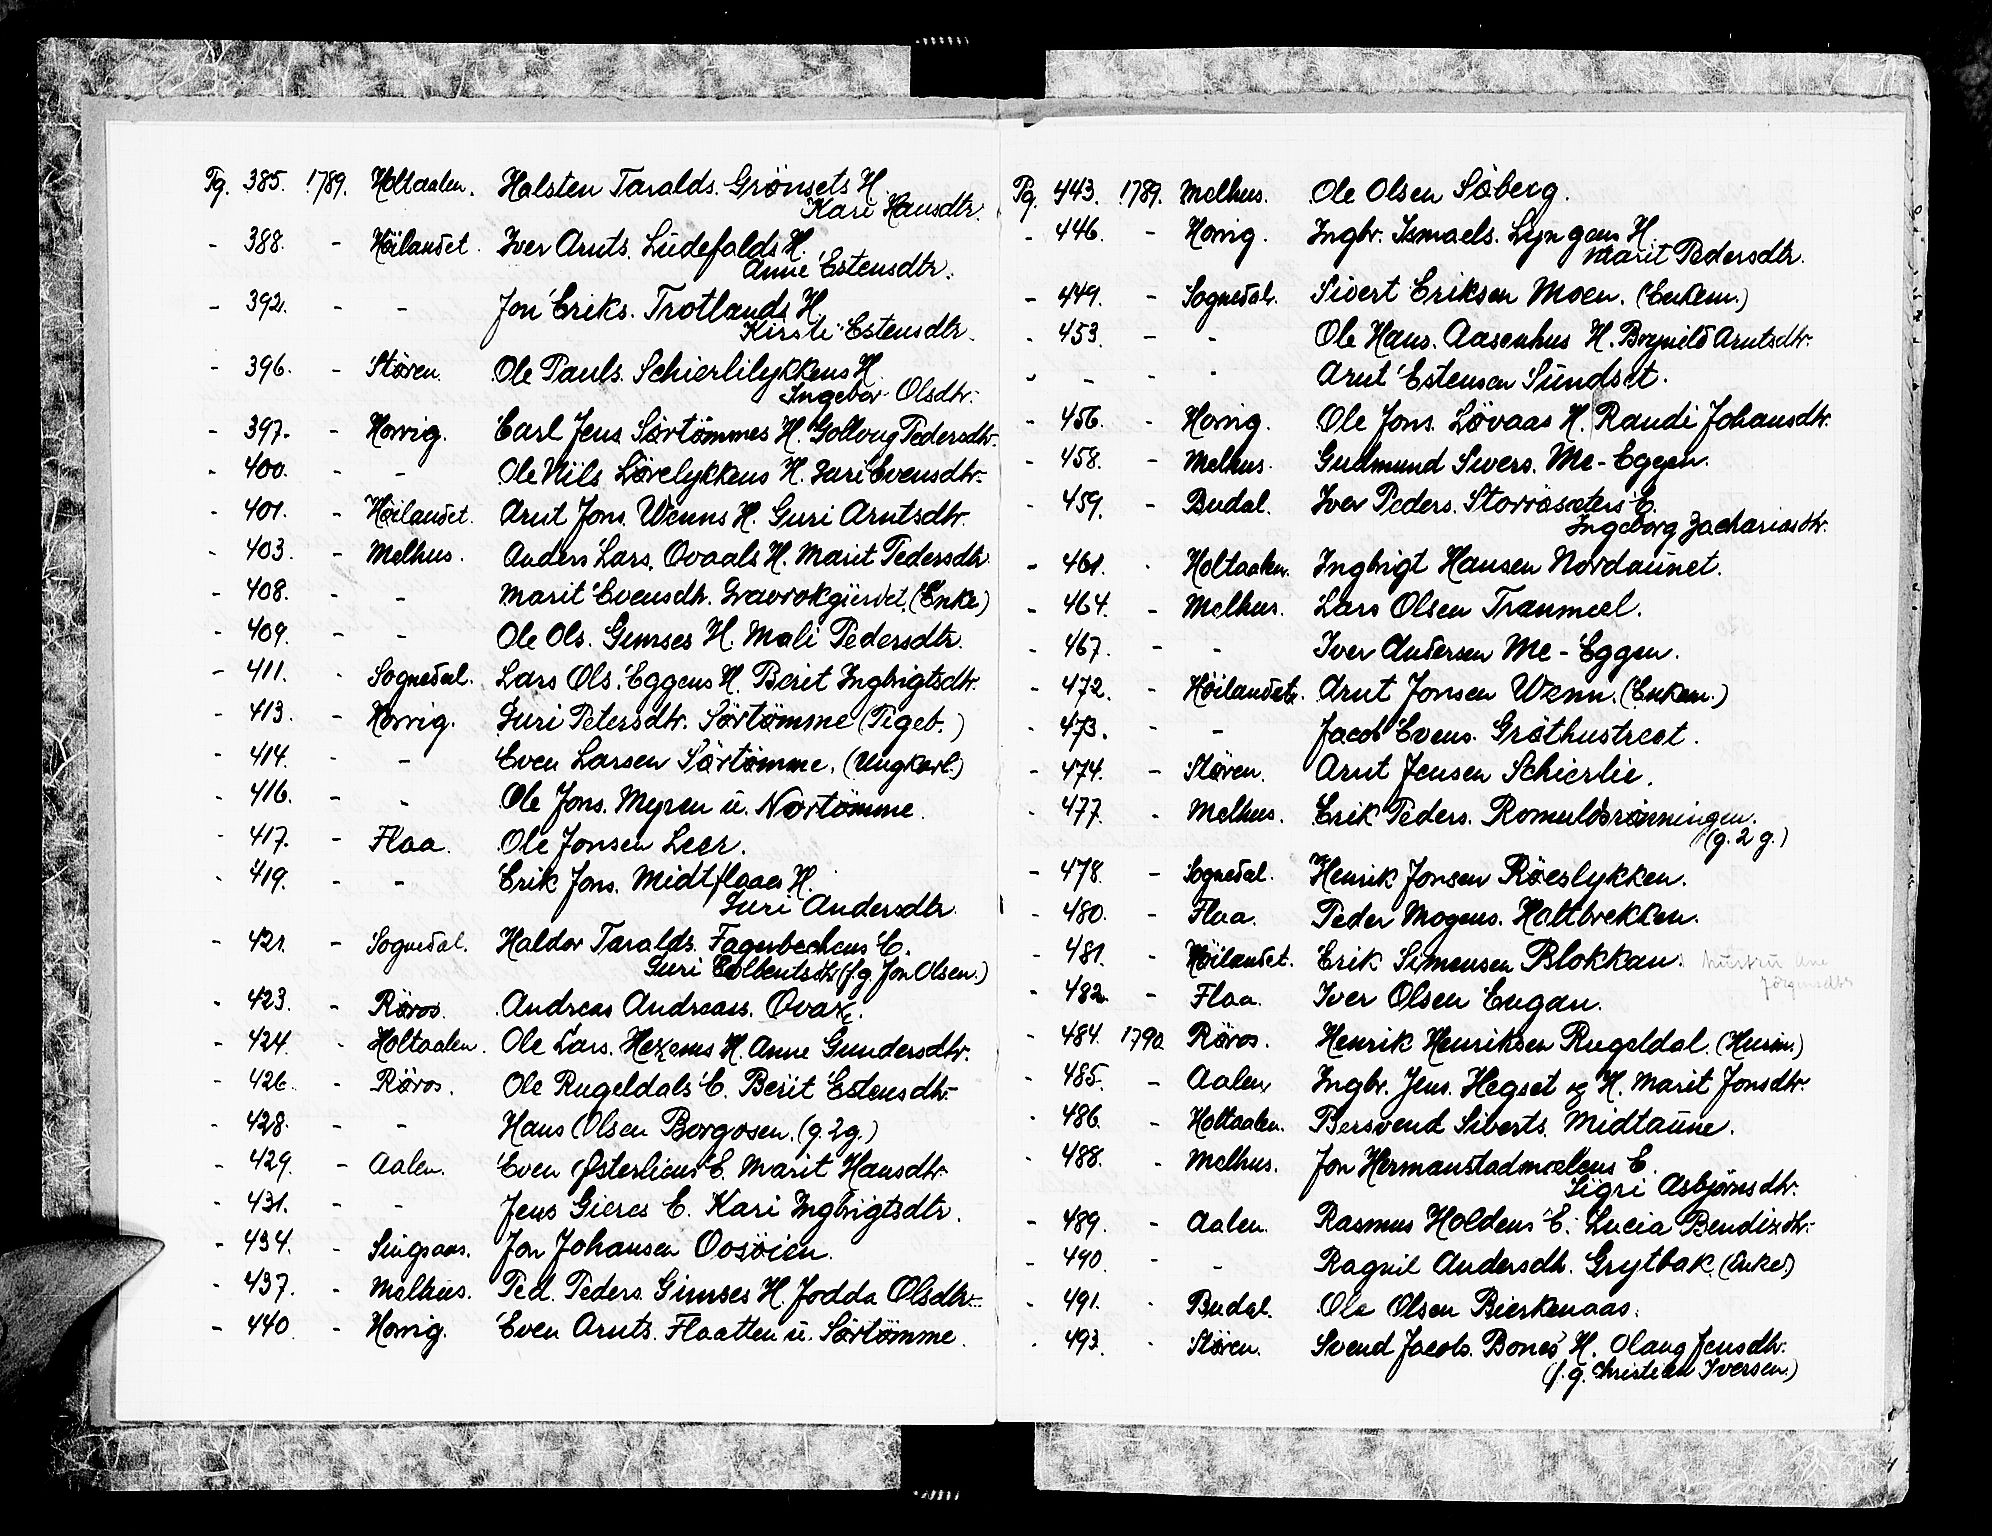 Pg. 385. 1789. Holtaalen. Halsten Taralds. Grönsets H.
Kari Hansdtr.
- 388. - Höilandet. Iver Arnts. Ludefalds H.
Anne Estensdtr.
- 392. - - Jon Eriks. Trotlands H.
Kirsti Estensdtr.
- 396. - Stören. Ole Pauls. Schierlilykkens H.
Ingebor Olsdtr.
- 397. - Horrig. Carl Jens. Sörtömmes H. Gollaug Pedersdtr.
- 400. - - Ole Nils. Lörelykkens H. Guri Evensdtr.
- 401. - Höilandet. Arnt Jons. Wenns H. Guri Arntsdtr.
- 403. - Melhus. Anders Lars. Ovaals H. Marit Pedersdtr.
- 408. - - Marit Evensdtr. (Enke)
- 409. - - Ole Ols. Gimses H. Mali Pedersdtr.
- 411. - Sognedal. Lars Ols. Eggens H. Berit Ingbrigtsdtr.
- 413. - Horrig. Guri Petersdtr. Sörtömme (Pigeb.)
- 414. - - Even Larsen Sörtömme. (Ungkarl.)
- 416. - - Ole Jons. Myren u. Nortömme.
- 417. - Flaa. Ole Jonsen Leer.
- 419. - - Erik Jons. Midtflaaes H.
Guri Andersdtr.
- 421. - Sognedal. Haldor Taralds. Fagerbechens E.
Guri (f.g. Jon Olsen.)
- 423. - Röros. Andreas Andreass.
- 424. - Holtaalen. Ole Lars. H. Anne Gundersdtr.
- 426. - Röros. Ole Rugeldals E. Berit Estensdtr.
- 428. - - Hans Olsen Borgosen. (g. 2 g.)
- 429. - Aalen. Even Østerliens E. Marit Hansdtr.
- 431. - - Jens Gieres E. Kari Ingbrigtsdtr.
- 434. - Singsaas. Jon Johansen Oosöien.
- 437. - Melhus. Ped. Peders. Gimses H. Jodda Olsdtr.
- 440. - Horrig. Even Arnts. Flaatten u. Sörtömme.
Pg. 443. 1789. Melhus. Ole Olsen Söberg.
- 446. - Horrig. Ingbr. Ismaels. Lyngens H.
Marit Pedersdtr.
- 449. - Sognedal. Sivert Eriksen Moen. (Enkem.)
- 453. - - Ole Hans. Aasenhus H. Brynild Arntsdtr.
- - - - Arnt Estensen Sundset.
- 456. - Horrig. Ole Jons. Lövaas H. Randi Johansdtr.
- 458. - Melhus. Gudmund Sivers. Me-Eggen.
- 459. - Budal. Iver Peders. Storrøsæters E.
Ingeborg Zachariasdtr.
- 461. - Holtaalen. Ingbrigt Hansen Nordaunet.
- 464. - Melhus. Lars Olsen Tranmæl.
- 467. - - Iver Andersen Me-Eggen.
- 472. - Höilandet. Arnt Jonsen Wenn. (Enkem.)
- 473. - - Jacob Evens. Gröthustrect.
- 474. - Stören. Arnt Jensen Schierlie.
- 477. - Melhus. Erik Peders. Romuldsrönningen.
(g. 2 g.)
- 478. - Sognedal. Henrik Jonsen Röeslykken.
- 480. - Flaa. Peder Mogens. Holtbrekken.
- 481. - Höilandet. Erik Simensen Blokkan. hustru Ane
Jörgensdtr
- 482. - Flaa. Iver Olsen Engan.
- 484. 1790. Röros. Henrik Henriksen Rugeldal. (Husm.)
- 485. - Aalen. Ingbr. Jens. Hegset og H. Marit Jonsdtr.
- 486. - Holtaalen. Bersvend Siverts. Midtaune.
- 488. - Melhus. Jon Hermanstadmælens E.
Sigri Asbjörnsdtr.
- 489. - Aalen. Rasmus Holdens E. Lucia Bendixdtr.
- 490. - - Ragnil Andersdtr. Grytbak. (Enke)
- 491. - Budal. Ole Olsen Bierkenaas.
- 493. - Stören. Svend Jacobs. Bones H. Olaug Jensdtr.
(f. g. Christian Iversen.)